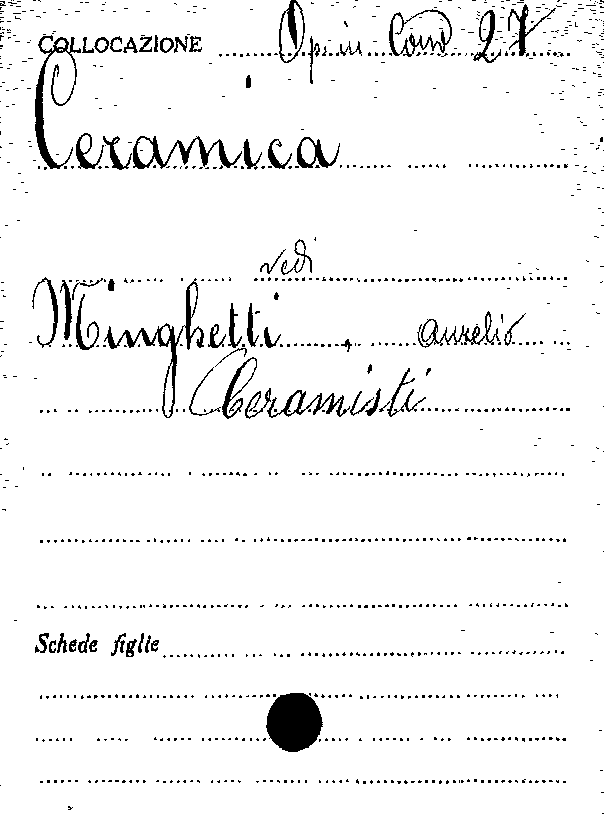 COLLOCAZIONE Op. in Cons 27
Ceramica
vedi
Minghetti, Aurelio
Ceramisti
Schede figlie